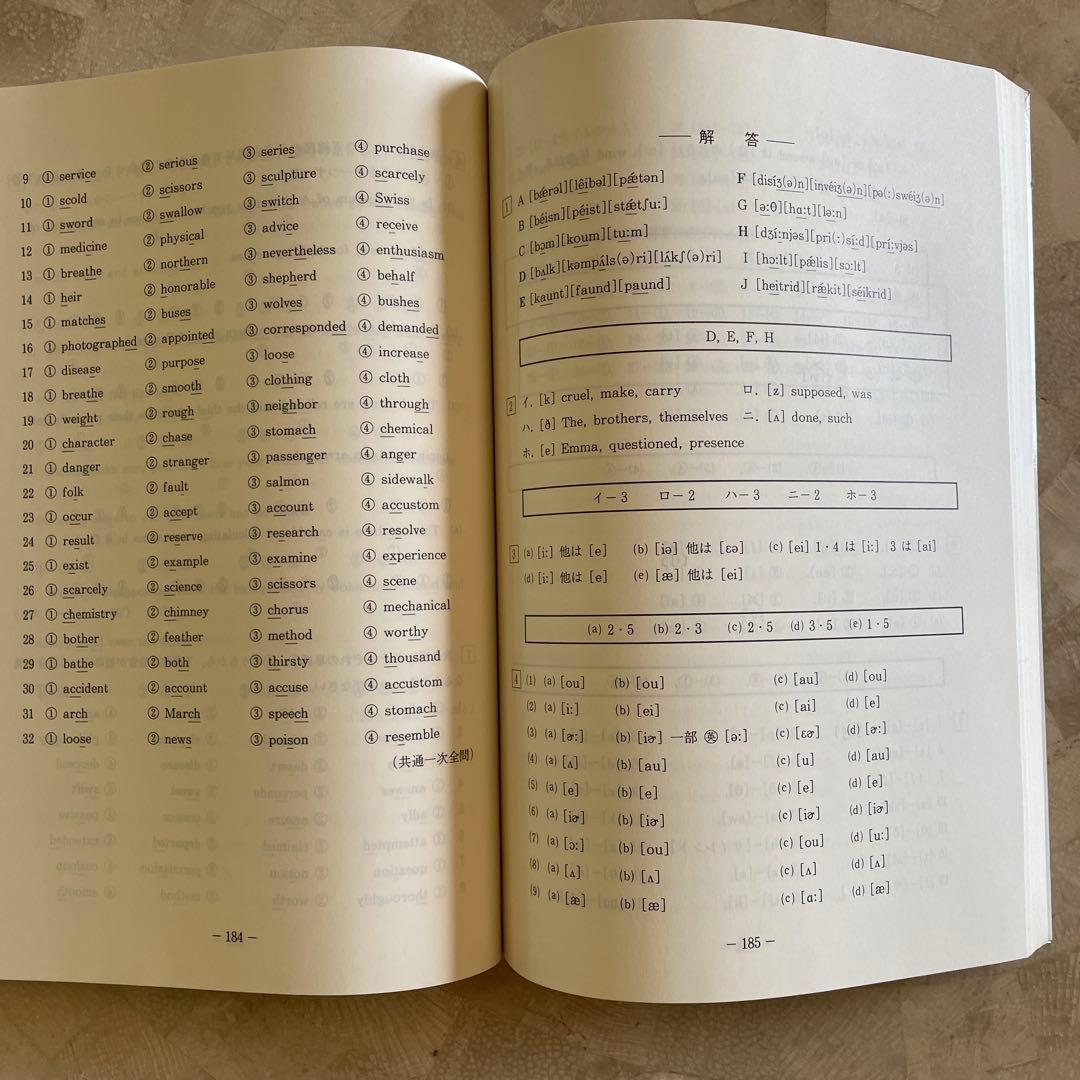 9 ① service ② serious ③ series ④ purchase
10 ① scold ② scissors ③ sculpture ④ scarcely
11 ① sword ② swallow ③ switch ④ Swiss
12 ① medicine ② physical ③ advice ④ receive
13 ① breathe ② northern ③ nevertheless ④ enthusiasm
14 ① heir ② honorable ③ shepherd ④ behalf
15 ① matches ② buses ③ wolves ④ bushes
16 ① photographed ② appointed ③ corresponded ④ demanded
17 ① disease ② purpose ③ loose ④ increase
18 ① breathe ② smooth ③ clothing ④ cloth
19 ① weight ② rough ③ neighbor ④ through
20 ① character ② chase ③ stomach ④ chemical
21 ① danger ② stranger ③ passenger ④ anger
22 ① folk ② fault ③ salmon ④ sidewalk
23 ① occur ② accept ③ account ④ accustom
24 ① result ② reserve ③ research ④ resolve
25 ① exist ② example ③ examine ④ experience
26 ① scarcely ② science ③ scissors ④ scene
27 ① chemistry ② chimney ③ chorus ④ mechanical
28 ① bother ② feather ③ method ④ worthy
29 ① bathe ② both ③ thirsty ④ thousand
30 ① accident ② account ③ accuse ④ accustom
31 ① arch ② March ③ speech ④ stomach
32 ① loose ② news ③ poison ④ resemble
(共通一次全問)
― 184 ―
―― 解 答 ――
1 A [bǽrəl][léibəl][pǽtən] F [disíʒ(ə)n][invéiʒ(ə)n][pə(ː)swéiʒ(ə)n]
B [béisn][péist][stǽtʃuː] G [əːθ][hɑːt][ləːn]
C [bɔm][koum][tuːm] H [dʒíːnjəs][pri(ː)síːd][príːvjəs]
D [bʌlk][kəmpʌ́ls(ə)ri][lʌ́kʃ(ə)ri] I [hɔːlt][pǽlis][sɔːlt]
E [kaunt][faund][paund] J [heitrid][rǽkit][séikrid]
D, E, F, H
2 イ. [k] cruel, make, carry ロ. [z] supposed, was
ハ. [ð] The, brothers, themselves ニ. [ʌ] done, such
ホ. [e] Emma, questioned, presence
イ－3 ロ－2 ハ－3 ニ－2 ホ－3
3 (a) [iː] 他は [e] (b) [iə] 他は [ɛə] (c) [ei] 1・4 は [iː] 3 は [ai]
(d) [iː] 他は [e] (e) [æ] 他は [ei]
(a) 2・5 (b) 2・3 (c) 2・5 (d) 3・5 (e) 1・5
4 (1) (a) [ou] (b) [ou] (c) [au] (d) [ou]
(2) (a) [iː] (b) [ei] (c) [ai] (d) [e]
(3) (a) [ɚː] (b) [iɚ] 一部 英 [əː] (c) [ɛɚ] (d) [ɚː]
(4) (a) [ʌ] (b) [au] (c) [u] (d) [au]
(5) (a) [e] (b) [e] (c) [e] (d) [e]
(6) (a) [iɚ] (b) [iɚ] (c) [iɚ] (d) [iɚ]
(7) (a) [ɔː] (b) [ou] (c) [ou] (d) [uː]
(8) (a) [ʌ] (b) [ʌ] (c) [ʌ] (d) [ʌ]
(9) (a) [æ] (b) [æ] (c) [ɑː] (d) [æ]
― 185 ―